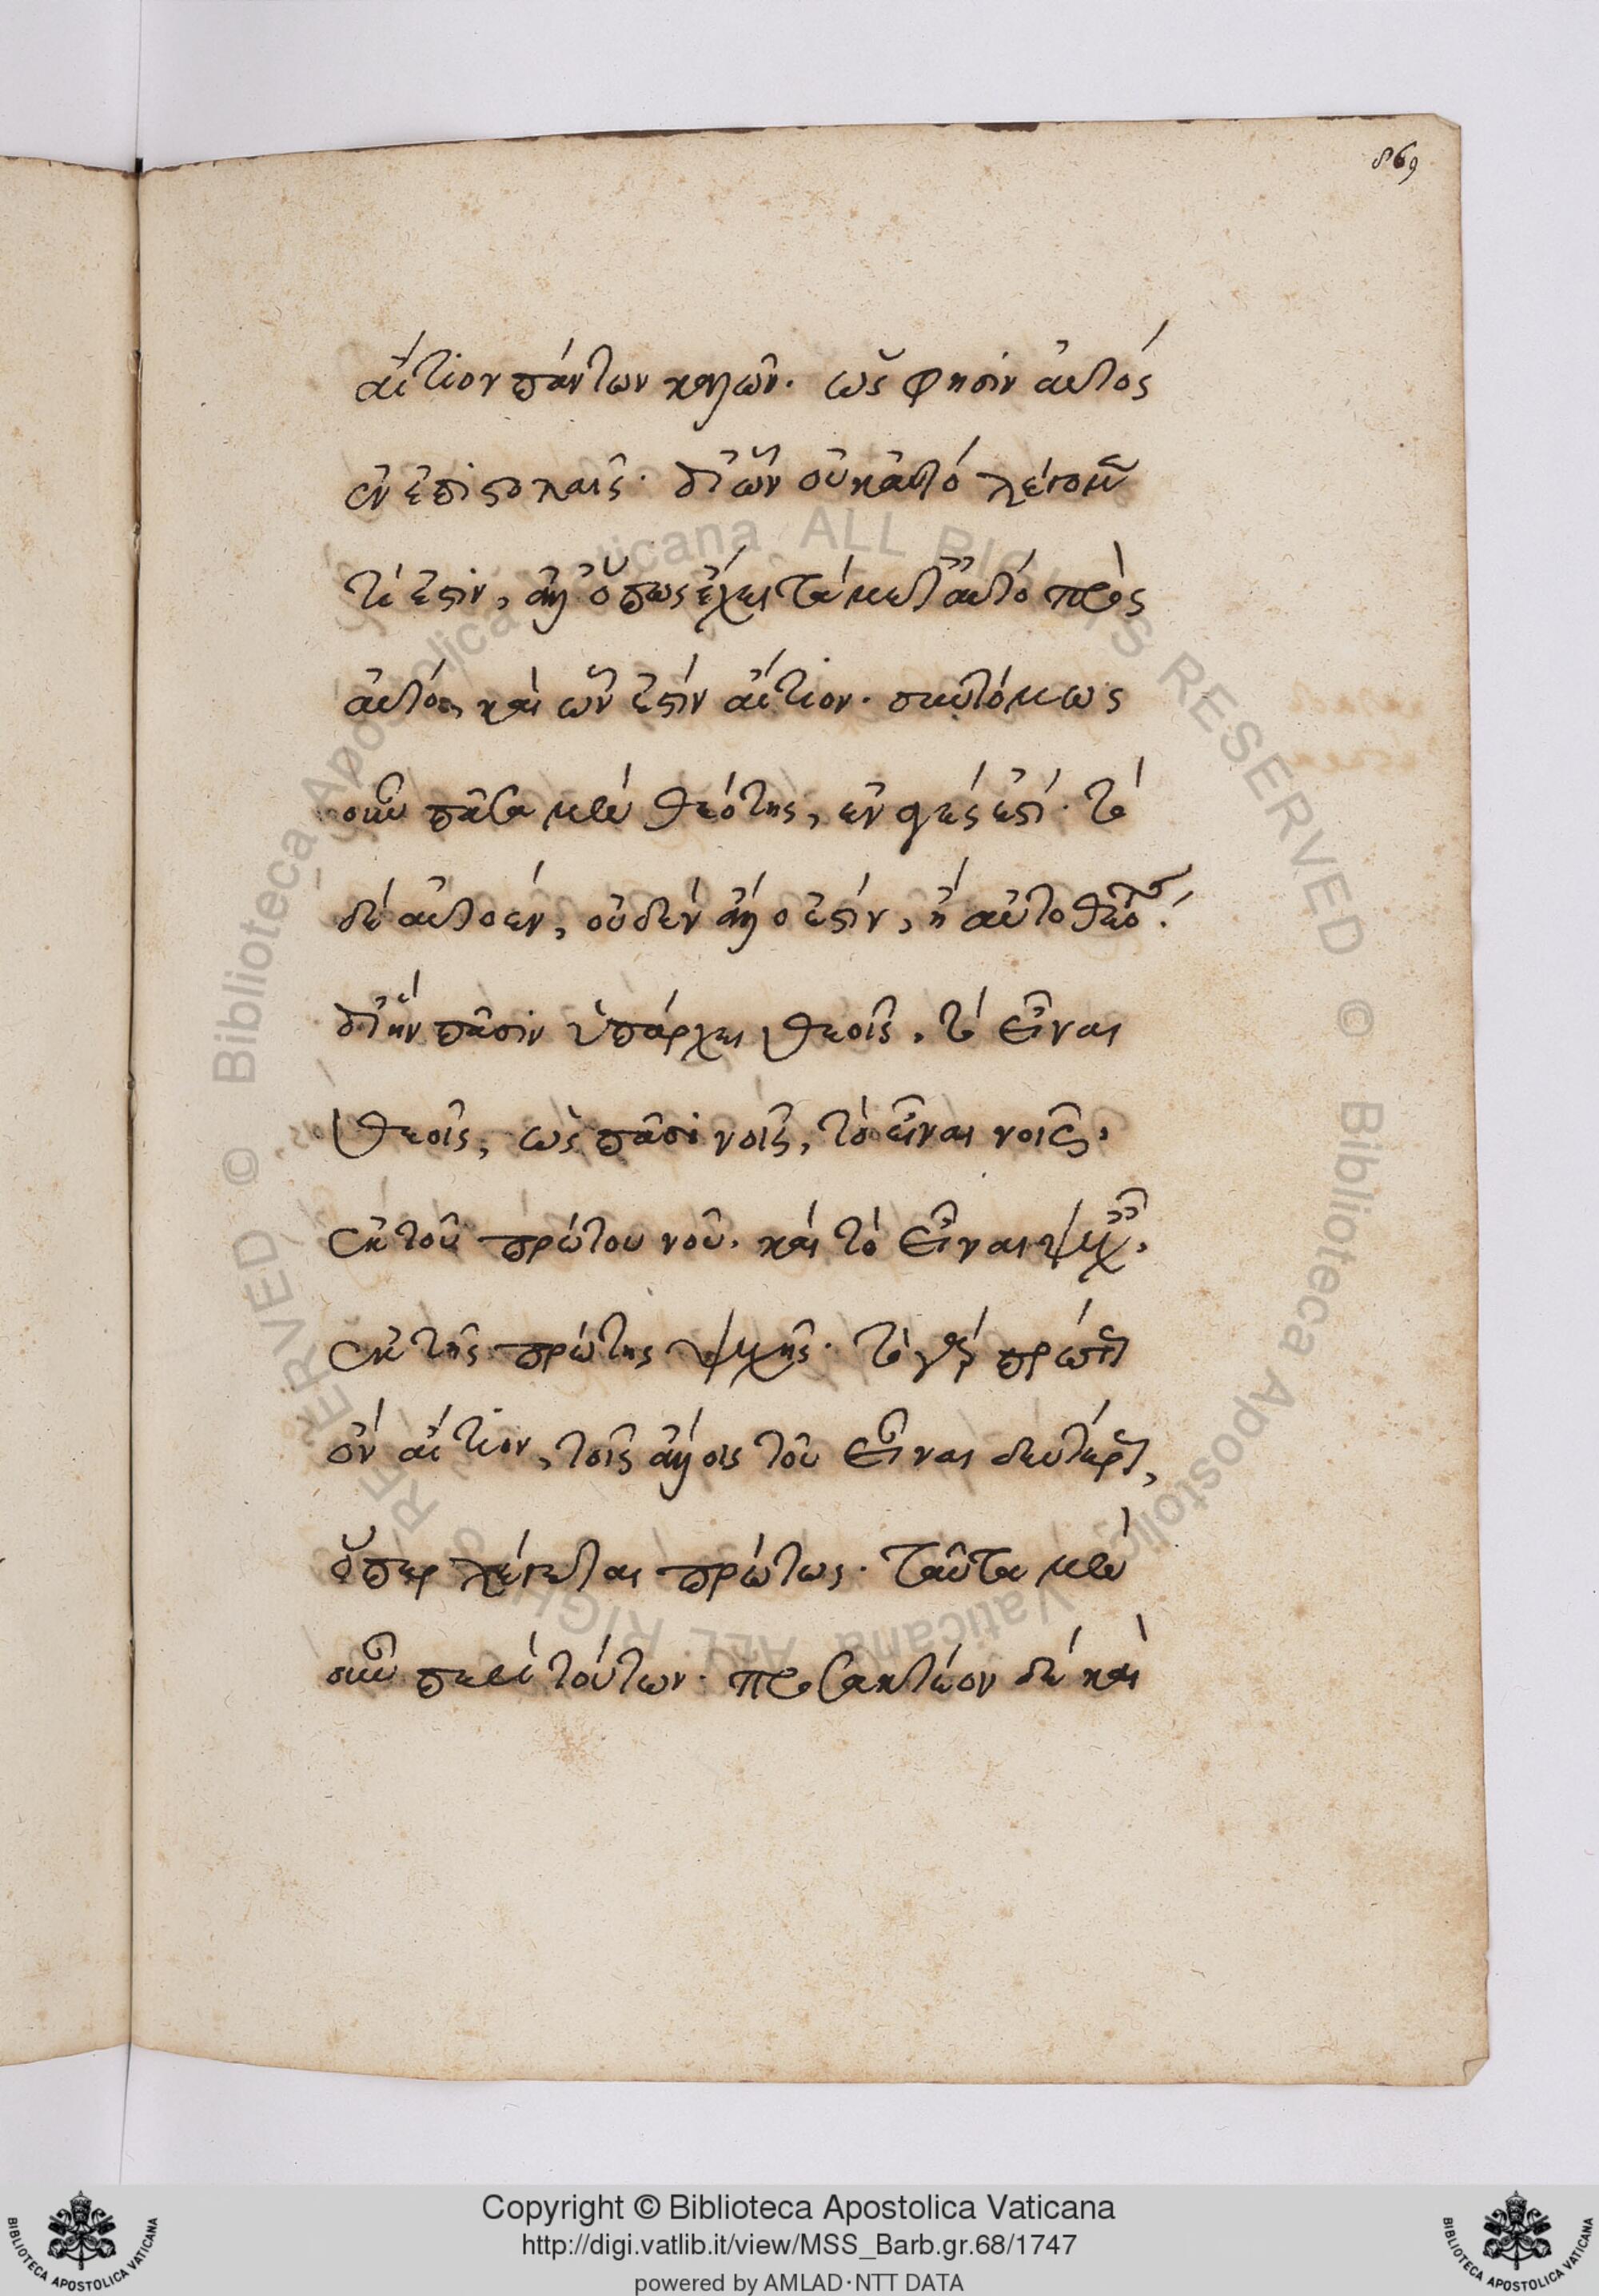 869
αἴτιον πάντων καλῶν. ὥς φησὶν αὐτὸς
ἐν ἐπιστολαῖς. δι' ὧν οὐκ αὐτό λέγομεν
τί ἐστιν, ἀλλ' ὅπως ἔχει τὰ μετ' αὐτὸ πρὸς
αὐτό, καὶ ὧν ἐστὶν αἴτιον. συντόμως
οὖν πᾶσα μὲν θεότης, ἑνάς ἐστι. τὸ
δὲ αὐτοέν, οὐδὲν ἄλλο ἐστὶν, ἢ αὐτοθεότης.
δι' ἣν πᾶσιν ὑπάρχει θεοῖς, τὸ εἶναι
θεοῖς, ὡς πᾶσι νοῖς, τὸ εἶναι νοῖς,
ἐκ τοῦ πρώτου νοῦ. καὶ τὸ εἶναι ψυχαῖς,
ἐκ τῆς πρώτης ψυχῆς. τὸ γὰρ πρώτως
ὂν αἴτιον, τοῖς ἄλλοις τοῦ εἶναι δευτέρως,
ὅπερ λέγεται πρώτως. ταῦτα μὲν
οὖν περὶ τούτων. προσακτέον δὲ καὶ
Copyright © Biblioteca Apostolica Vaticana
http://digi.vatlib.it/view/MSS_Barb.gr.68/1747
powered by AMLAD·NTT DATA
BIBLIOTECA APOSTOLICA VATICANA
BIBLIOTECA APOSTOLICA VATICANA
© Biblioteca Apostolica Vaticana ALL RIGHTS RESERVED © Biblioteca Apostolica Vaticana ALL RIGHTS RESERVED